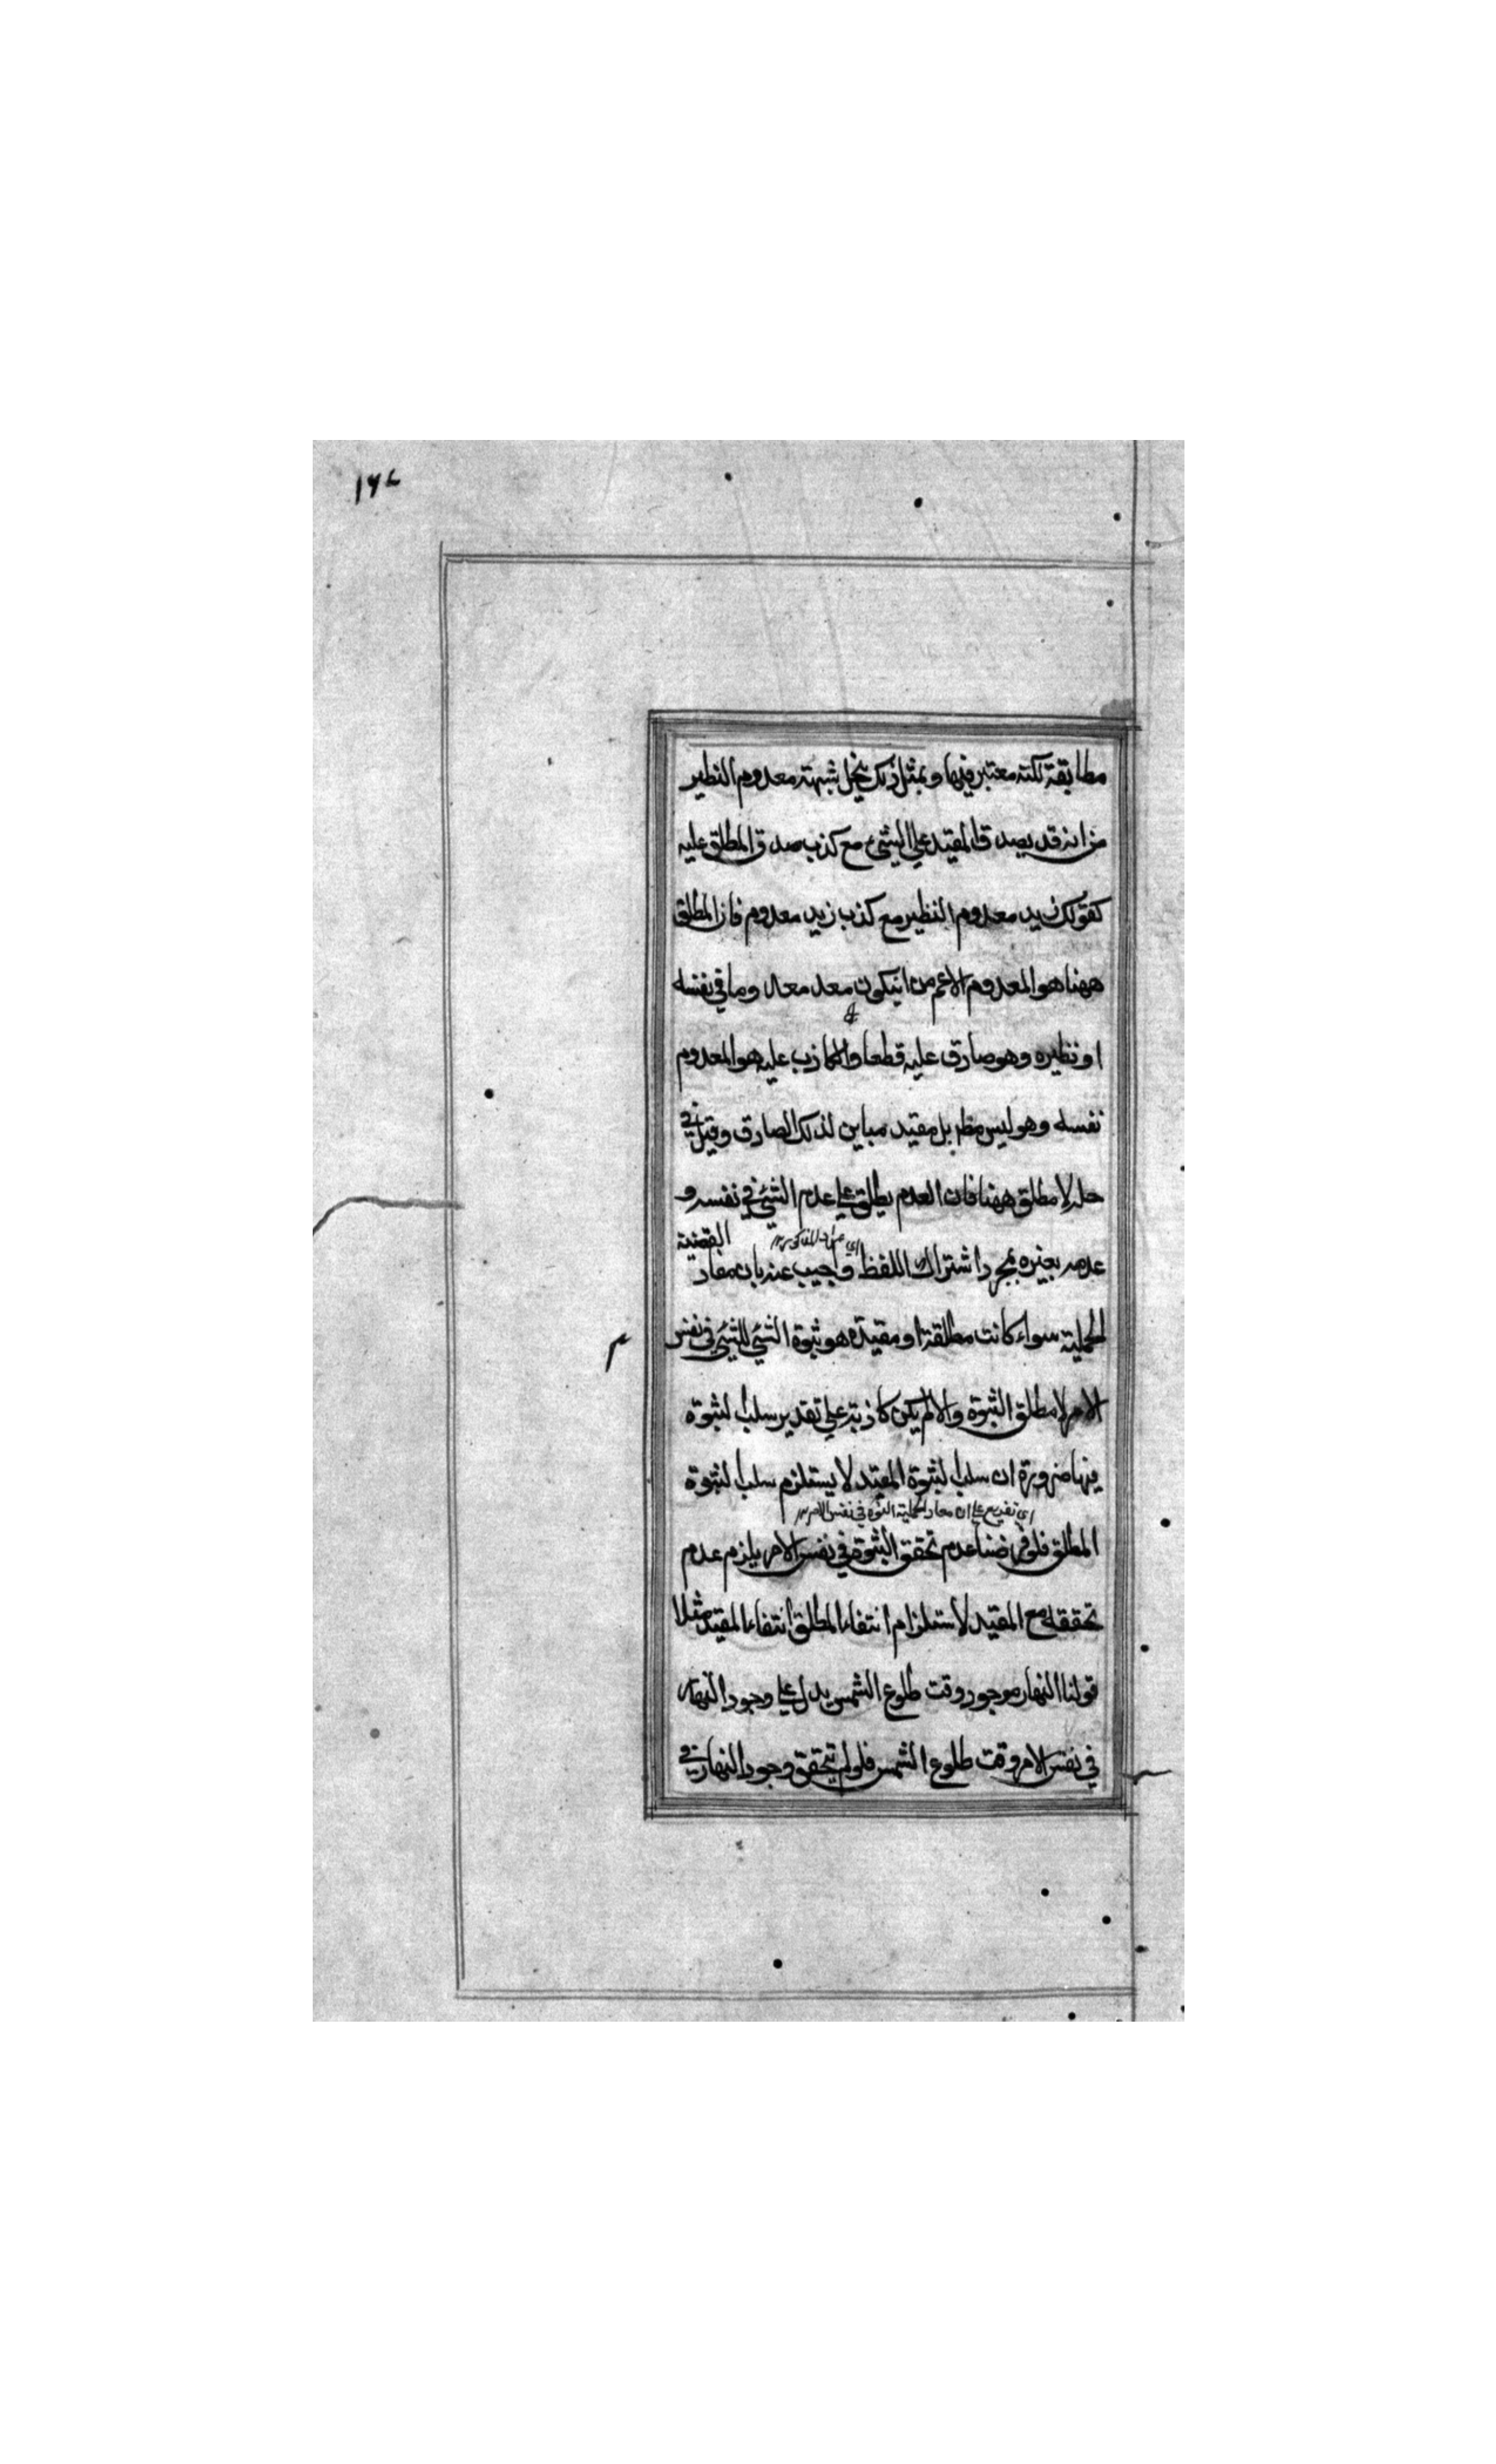 ١٦٧
مطابقة لكنه معتبر فيها و بمثل ذلك ينحل شبهة معدوم النظير
من انه قد يصدق المقيد علي الشيء مع كذب صدق المطلق عليه
كقولك زيد معدوم النظير مع كذب زيد معدوم فان المطلق
ههنا هو المعدوم الاعم من انيكون معد وما في نفسه
او نظيره وهو صادق عليه قطعا والكاذب عليه هو المعدوم
نفسه وهو ليس مط بل مقيد مباين لذلك الصادق وقيل في
حله لا مطلق ههنا فان العدم يطلق علي عدم الشيء في نفسه و
عدمه بغيره بمجرد اشتراك اللفظ واجيب عنه بان مفاد القضية
الحملية سواء كانت مطلقة او مقيدة هو ثبوة الشيء للشيء في نفس
الامر لا مطلق الثبوة والا لم يكن كاذبة علي تقدير سلب الثبوة
فيها ضرورة ان سلب الثبوة المقيد لا يستلزم سلب الثبوة
اي تفريع علي ان مفاد الحملية الثبوة في نفس الامر
المطلق فلو فرضنا عدم تحقق الثبوة في نفس الامر يلزم عدم
تحققه مع المقيد لاستلزام انتفاء المطلق انتفاء المقيد مثلا
قولنا النهار موجود وقت طلوع الشمس يدل علي وجود النهار
في نفس الامر وقت طلوع الشمس فلو لم يتحقق وجود النهار في